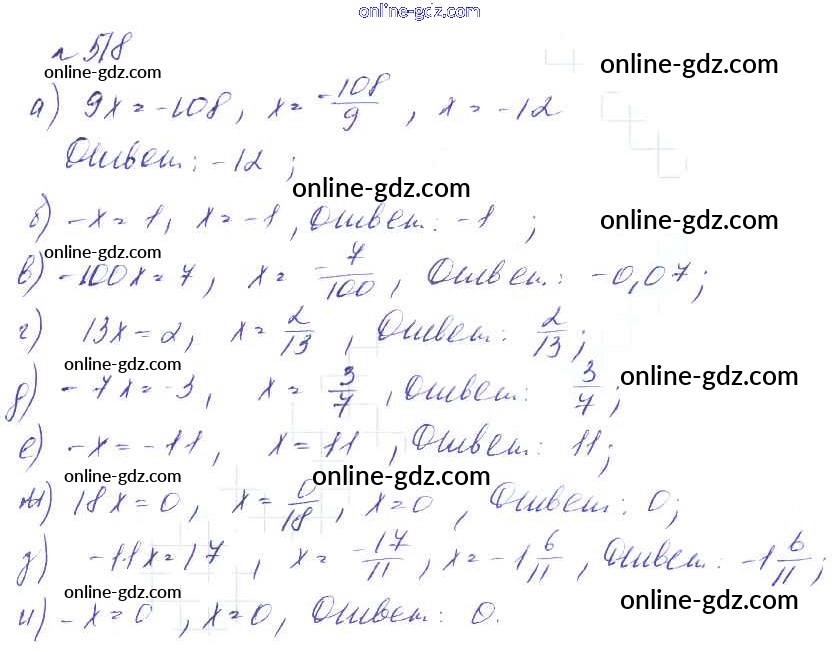 online-gdz.com
№ 518
online-gdz.com online-gdz.com
а) 9x = -108, x = -108/9, x = -12
Ответ: -12;
online-gdz.com
б) -x = 1, x = -1, Ответ: -1; online-gdz.com
online-gdz.com
в) -100x = 7, x = -7/100, Ответ: -0,07;
г) 13x = 2, x = 2/13, Ответ: 2/13;
online-gdz.com online-gdz.com
д) -7x = -3, x = 3/7, Ответ: 3/7;
е) -x = -11, x = 11, Ответ: 11;
online-gdz.com online-gdz.com
ж) 18x = 0, x = 0/18, x = 0, Ответ: 0;
з) -11x = 17, x = -17/11, x = -1 6/11, Ответ: -1 6/11;
online-gdz.com online-gdz.com
и) -x = 0, x = 0, Ответ: 0.